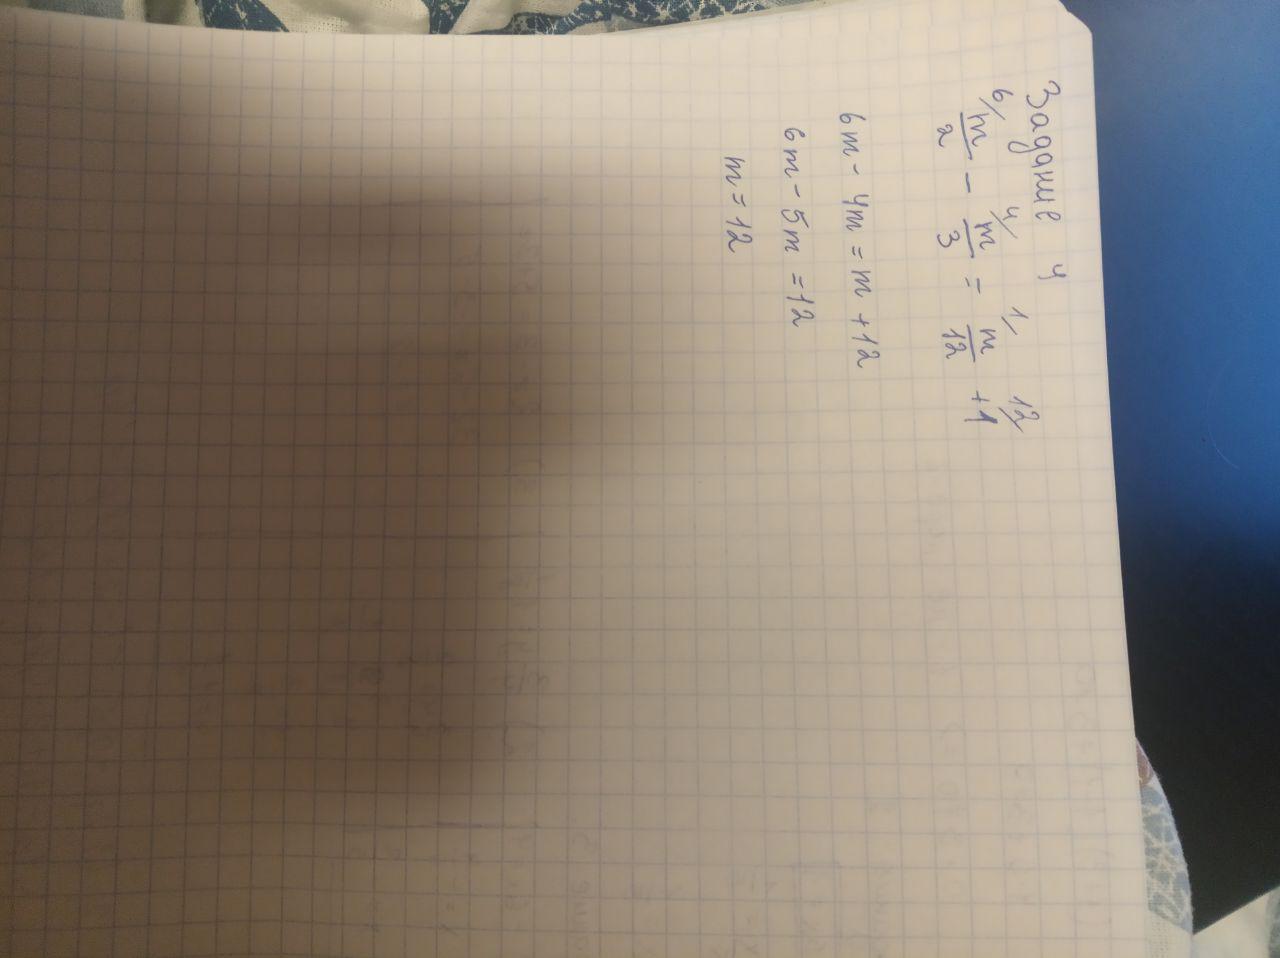 Задание 4
6/ 4/ 1/ 12/
m/2 - m/3 = m/12 +1
6m - 4m = m + 12
6m - 5m = 12
m = 12